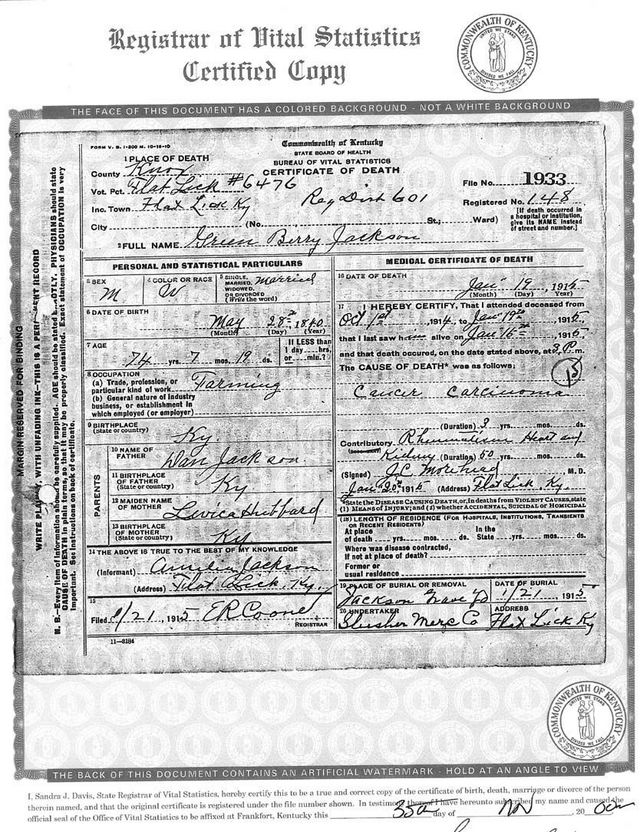 Registrar of Vital Statistics
Certified Copy
COMMONWEALTH OF KENTUCKY
THE FACE OF THIS DOCUMENT HAS A COLORED BACKGROUND - NOT A WHITE BACKGROUND
FORM V. S. 1-200 M. 10-16-10
Commonwealth of Kentucky
STATE BOARD OF HEALTH
BUREAU OF VITAL STATISTICS
CERTIFICATE OF DEATH
1 PLACE OF DEATH
County Knox
Vot. Pct. Flat Lick #6476
Reg Dist 601
File No. 1933
Inc. Town Flat Lick Ky
Registered No. 148
City (No. St.; Ward)
[If death occurred in a hospital or institution, give its NAME instead of street and number.]
2 FULL NAME Green Berry Jackson
PERSONAL AND STATISTICAL PARTICULARS
3 SEX M
4 COLOR OR RACE W
5 SINGLE, MARRIED, WIDOWED, OR DIVORCED (Write the word) Married
6 DATE OF BIRTH
May 28th 1840
(Month) (Day) (Year)
7 AGE
74 yrs. 7 mos. 19 ds.
If LESS than 1 day... hrs. or ... min.?
8 OCCUPATION
(a) Trade, profession, or particular kind of work Farming
(b) General nature of industry business, or establishment in which employed (or employer)
9 BIRTHPLACE (State or country) Ky
PARENTS
10 NAME OF FATHER Dan Jackson
11 BIRTHPLACE OF FATHER (State or country) Ky
12 MAIDEN NAME OF MOTHER Levica Hubbard
13 BIRTHPLACE OF MOTHER (State or country) Ky
14 THE ABOVE IS TRUE TO THE BEST OF MY KNOWLEDGE
(Informant) Jackson
(Address) Flat Lick Ky.
15
Filed 1/21, 1915 ER Coone
REGISTRAR
11-3184
MEDICAL CERTIFICATE OF DEATH
16 DATE OF DEATH
Jan 19, 1915
(Month) (Day) (Year)
17 I HEREBY CERTIFY, That I attended deceased from
Oct 1st, 1914, to Jan 19th, 1915,
that I last saw him alive on Jan 16th, 1915,
and that death occurred, on the date stated above, at 3 P.m.
The CAUSE OF DEATH* was as follows:
Cancer Carcinoma
(Duration) 3 yrs. mos. ds.
Contributory Rheumatism Heart and
Kidney (Duration) 50 yrs. mos. ds.
(Signed) J.C. Morehead, M. D.
Jan 20, 1915 (Address) Flat Lick, Ky.
*State the DISEASE CAUSING DEATH, or, in deaths from VIOLENT CAUSES, state (1) MEANS OF INJURY; and (2) whether ACCIDENTAL, SUICIDAL or HOMICIDAL
(18) LENGTH OF RESIDENCE (FOR HOSPITALS, INSTITUTIONS, TRANSIENTS OR RECENT RESIDENTS)
At place of death yrs. mos. ds. In the State yrs. mos. ds.
Where was disease contracted, if not at place of death?
Former or usual residence
19 PLACE OF BURIAL OR REMOVAL
Jackson Grave Yd
DATE OF BURIAL
1/21, 1915
20 UNDERTAKER
Slusher Merc Co
ADDRESS
Flat Lick Ky
MARGIN RESERVED FOR BINDING
WRITE PLAINLY, WITH UNFADING INK—THIS IS A PERMANENT RECORD
N. B.—Every item of information should be carefully supplied. AGE should be stated EXACTLY. PHYSICIANS should state CAUSE OF DEATH in plain terms, so that it may be properly classified. Exact statement of OCCUPATION is very important. See instructions on back of certificate.
COMMONWEALTH OF KENTUCKY
THE BACK OF THIS DOCUMENT CONTAINS AN ARTIFICIAL WATERMARK - HOLD AT AN ANGLE TO VIEW
I, Sandra J. Davis, State Registrar of Vital Statistics, hereby certify this to be a true and correct copy of the certificate of birth, death, marriage or divorce of the person
therein named, and that the original certificate is registered under the file number shown. In testimony thereof I have hereunto subscribed my name and caused the
official seal of the Office of Vital Statistics to be affixed at Frankfort, Kentucky this day of 20